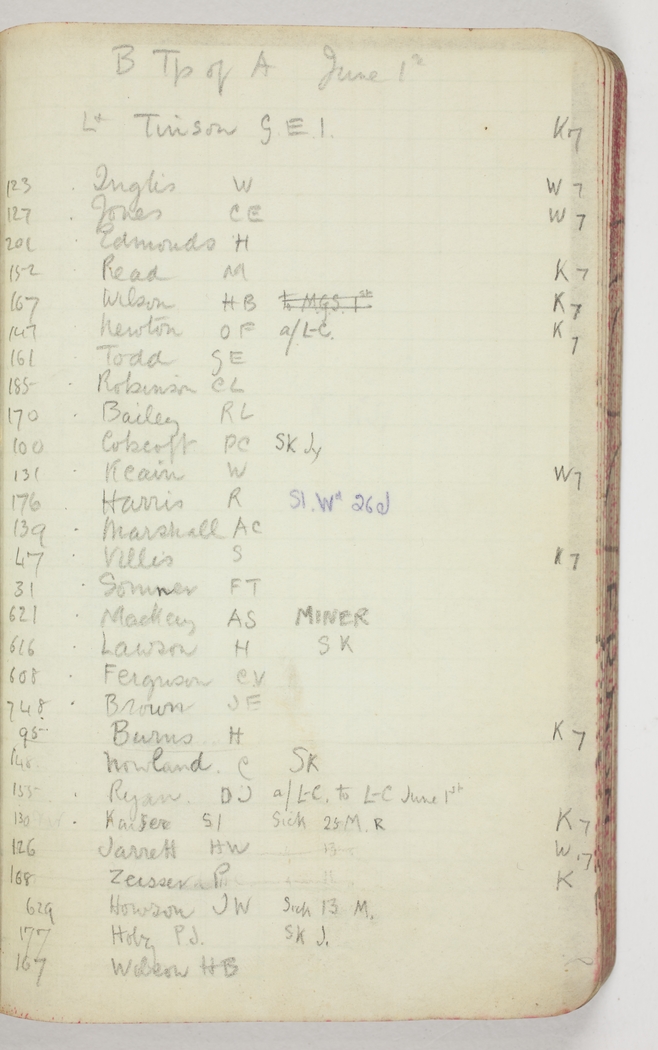 B Tp of A June 1st
Lt Tinson G.E.I. K7
123 . Inglis W W 7
127 . Jones CE W 7
201 . Edmonds H
152 - Read M K7
167 Wilson HB to MGS 1st K7
147 Newton OF a/L-C. K 7
161 . Todd GE
185 . Robinson CL
170 . Bailey RL
100 . PC SK Jy
131 . Keain W W7
176 . Harris R Sl. Wd 26J
139 - Marshall AC
47 . Villis S K7
31 . Sommer FT
621 . Mackay AS MINER
616 - Lawson H SK
608 . Ferguson CV
748 . Brown JE
95 Burns H K7
148 Nowland. C SK
155 . Ryan. DJ a/L-C. to L-C June 1st
130 . Kaiser SI Sick 25 M. R K7
126 Jarrett HW W.7
168 P K
629 Howson JW Sick 13 M.
177 Hoby P.J. SK J.
167 Wilson HB